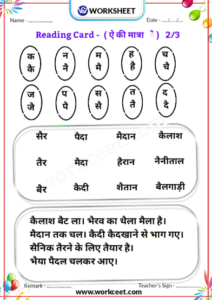 V2 WORKSHEET
Name - Date - .../.../...
Reading Card - ( ऐ की मात्रा ै ) 2/3
क न म ह च
कै नै मै है चै
ज प स त द
जै पै सै तै दै
सैर पैदा मैदान कैलाश
तैर मैदा हैरान नैनीताल
बैर कैदी शैतान बैलगाड़ी
कैलाश बैट ला। भैरव का थैला मैला है।
मैदान तक चल। कैदी कैदखाने से भाग गए।
सैनिक तैरने के लिए तैयार है।
भैया पैदल चलकर आए।
Remark - Teacher's Sign -
www.workceet.com